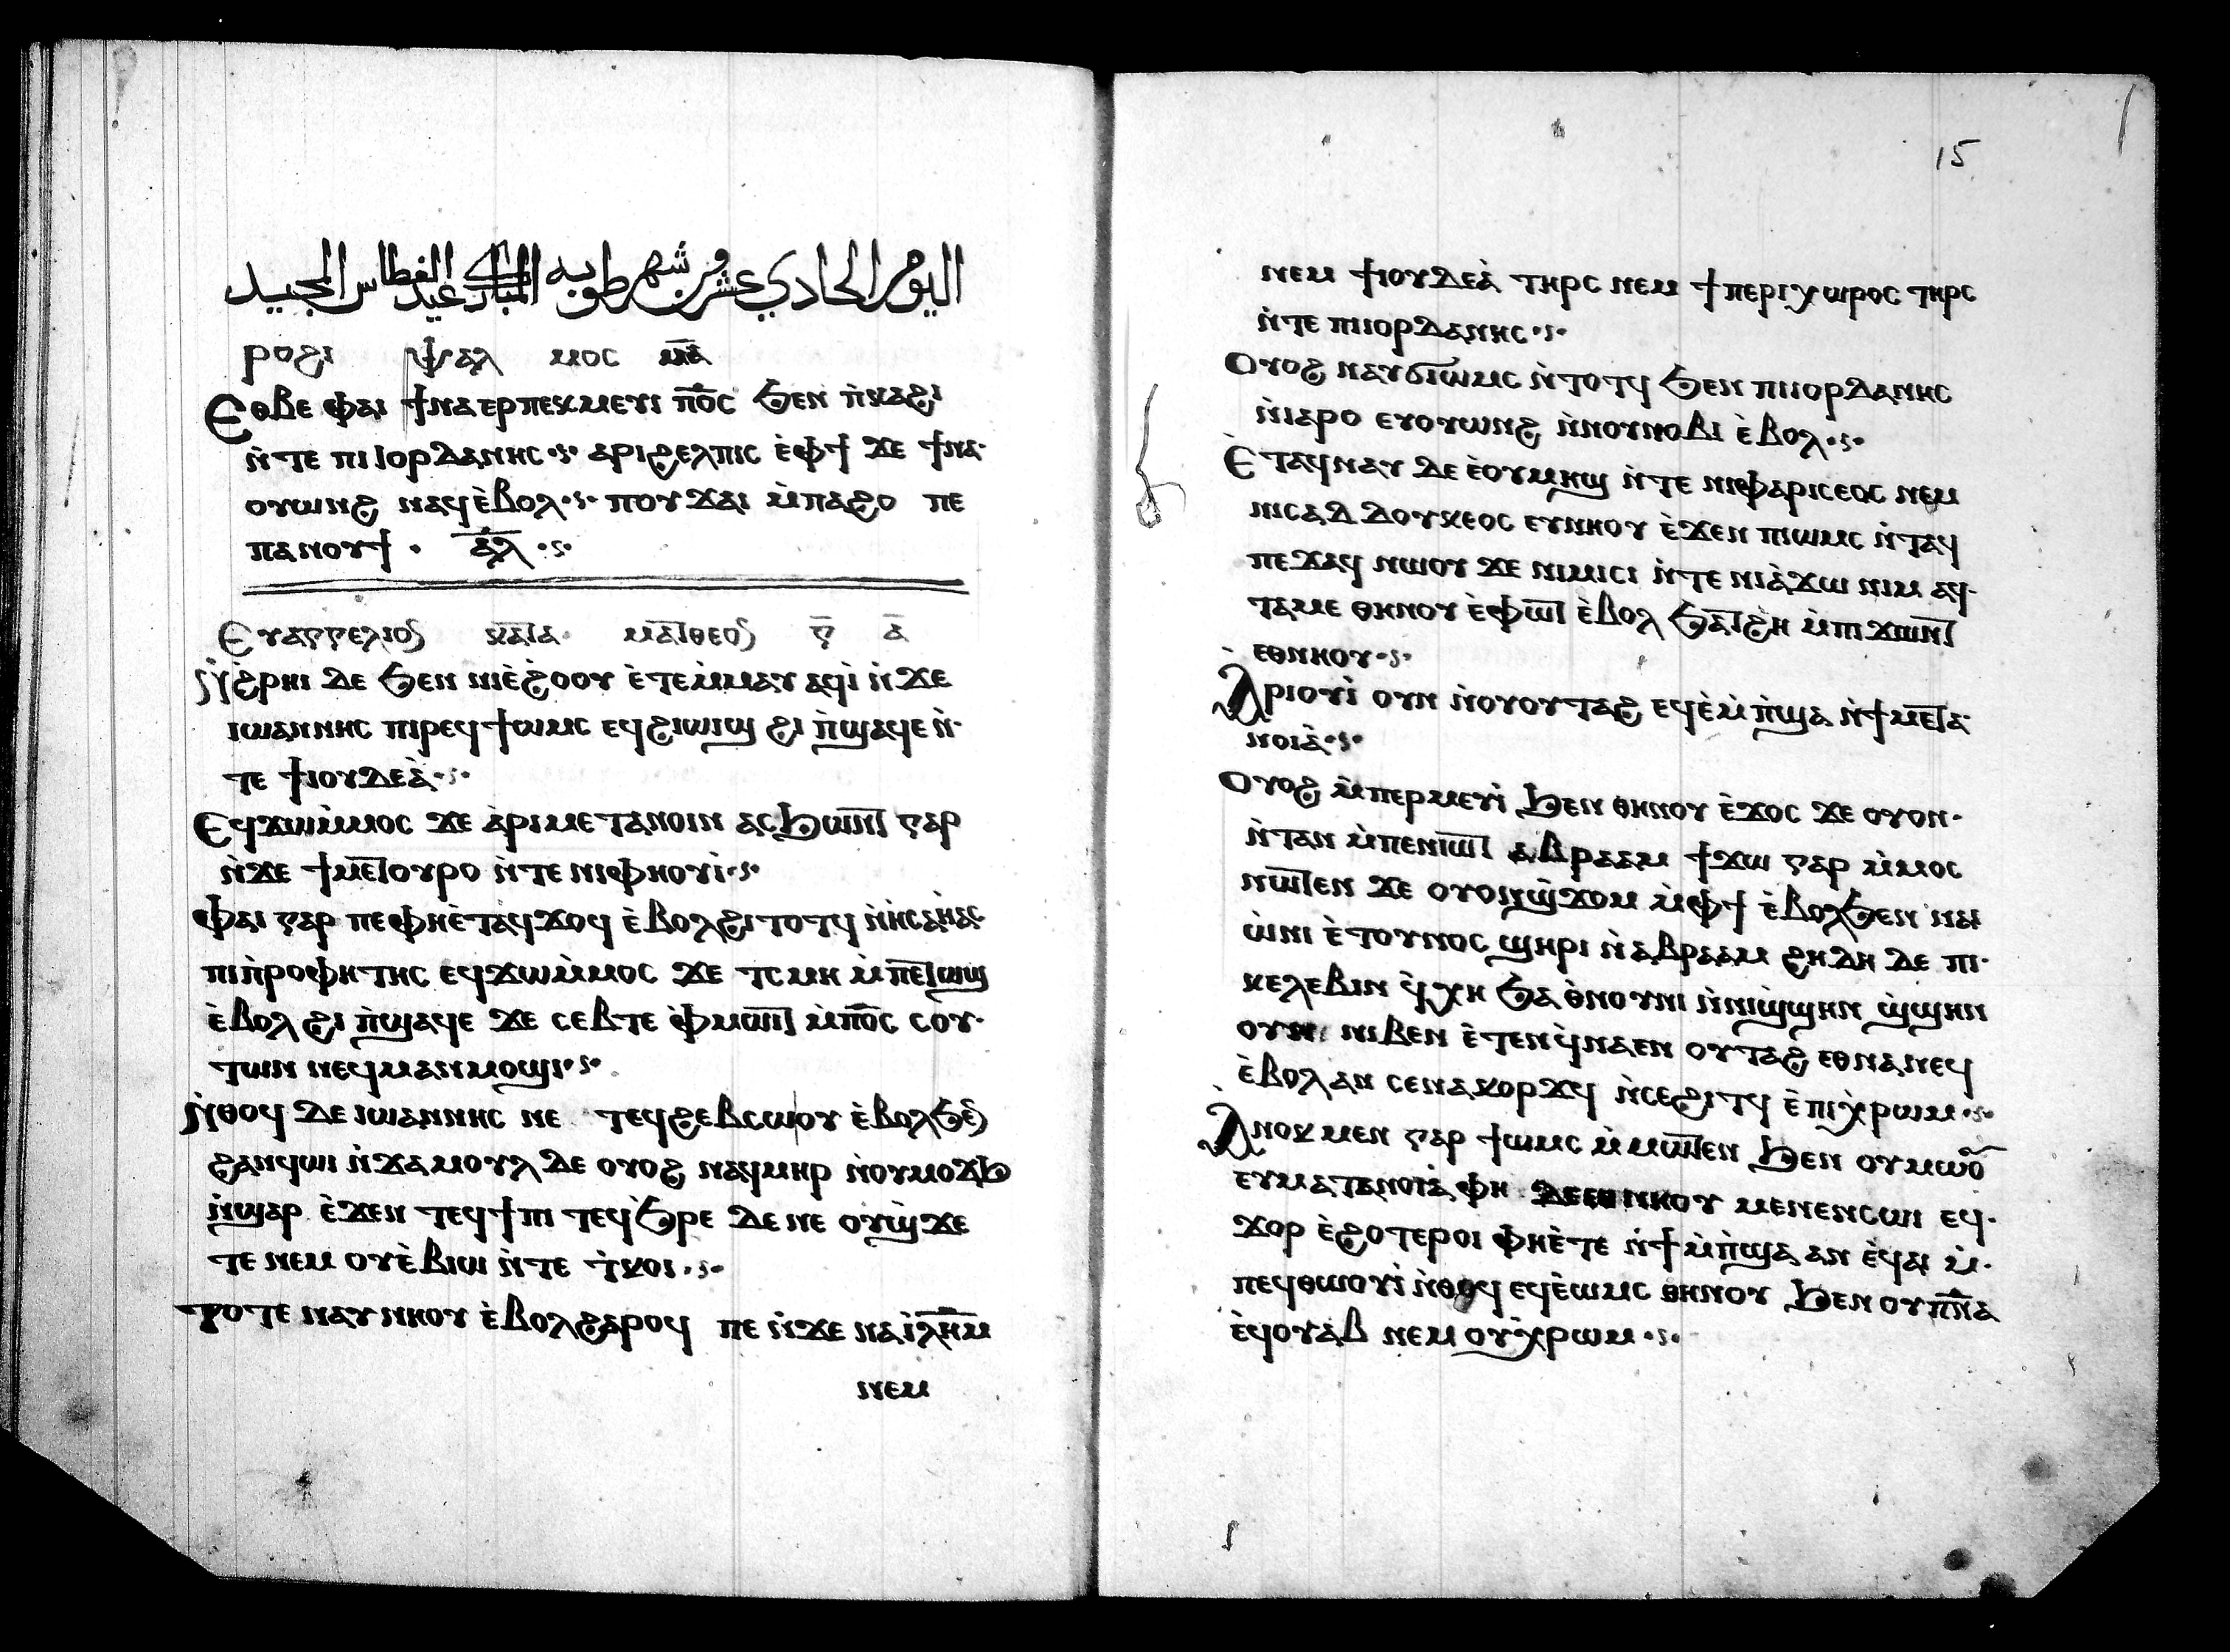 اليوم الحادي عشر من شهر طوبه المبارك عيد الغطاس المجيد
ⲣⲟϩⲓ ⲯⲁⲗ ⲙⲟⲥ ⲙ̅ⲁ̅
Ⲉⲑⲃⲉ ⲫⲁⲓ ϯⲛⲁⲉⲣⲡⲉⲕⲙⲉⲩⲓ ⲡ̅ⲟ̅ⲥ̅ ϧⲉⲛ ⲡ̀ⲕⲁϩⲓ
ⲛ̀ⲧⲉ ⲡⲓⲓⲟⲣⲇⲁⲛⲏⲥ·ⲋ· ⲁⲣⲓϩⲉⲗⲡⲓⲥ ⲉ̀ⲫϯ ϫⲉ ϯⲛⲁ·
ⲟⲩⲱⲛϩ ⲛⲁϥⲉ̀ⲃⲟⲗ·ⲋ· ⲡⲟⲩϫⲁⲓ ⲙ̀ⲡⲁϩⲟ ⲡⲉ
ⲡⲁⲛⲟⲩϯ · ⲁ̅ⲗ̅ ·ⲋ·
Ⲉⲩⲁⲅⲅⲉⲗⲓⲟⲛ ⲕⲁⲧⲁ ⲙⲁⲧⲑⲉⲟⲛ ⲅ̅ ⲁ̅
Ⲛ̀ϩⲣⲏⲓ ⲇⲉ ϧⲉⲛ ⲛⲓⲉ̀ϩⲟⲟⲩ ⲉ̀ⲧⲉⲙ̀ⲙⲁⲩ ⲁϥⲓ̀ ⲛ̀ϫⲉ
ⲓⲱⲁⲛⲛⲏⲥ ⲡⲓⲣⲉϥϯⲱⲙⲥ ⲉϥϩⲓⲱⲓϣ ϩⲓ ⲡ̀ϣⲁϥⲉ ⲛ̀·
ⲧⲉ ϯⲓⲟⲩⲇⲉⲁ̀·ⲋ·
Ⲉϥϫⲱⲙ̀ⲙⲟⲥ ϫⲉ ⲁ̀ⲣⲓⲙⲉⲧⲁⲛⲟⲓⲛ ⲁⲥϧⲱⲛⲧ ⲅⲁⲣ
ⲛ̀ϫⲉ ϯⲙⲉⲧⲟⲩⲣⲟ ⲛ̀ⲧⲉ ⲛⲓⲫⲏⲟⲩⲓ̀·ⲋ·
Ⲫⲁⲓ ⲅⲁⲣ ⲡⲉ ⲫⲏⲉ̀ⲧⲁϥϫⲟϥ ⲉ̀ⲃⲟⲗϩⲓⲧⲟⲧϥ ⲛ̀ⲏⲥⲁⲏ̀ⲁⲥ
ⲡⲓⲡ̀ⲣⲟⲫⲏⲧⲏⲥ ⲉϥϫⲱⲙ̀ⲙⲟⲥ ϫⲉ ⲧⲥⲙⲏ ⲙ̀ⲡⲉⲧⲱϣ
ⲉ̀ⲃⲟⲗ ϩⲓ ⲡ̀ϣⲁϥⲉ ϫⲉ ⲥⲉⲃⲧⲉ ⲫ̀ⲙⲱⲓⲧ ⲙ̀ⲡ̅ⲟ̅ⲥ̅ ⲥⲟⲩ·
ⲧⲱⲛ ⲛⲉϥⲙⲁⲛⲙⲟϣⲓ·ⲋ·
Ⲛ̀ⲑⲟϥ ⲇⲉ ⲓⲱⲁⲛⲛⲏⲥ ⲛⲉ ⲧⲉϥϩⲉⲃⲥⲱⲟⲩ ⲉ̀ⲃⲟⲗϧⲉⲛ
ϩⲁⲛϥⲱⲓ ⲛ̀ϫⲁⲙⲟⲩⲗ ⲇⲉ ⲟⲩⲟϩ ⲛⲁϥⲙⲏⲣ ⲛ̀ⲟⲩⲙⲟϫϧ
ⲛ̀ϣⲁⲣ ⲉ̀ϫⲉⲛ ⲧⲉϥϯⲡⲓ ⲧⲉϥϧⲣⲉ ⲇⲉ ⲛⲉ ⲟⲩϣ̀ϫⲉ
ⲧⲉ ⲛⲉⲙ ⲟⲩⲉ̀ⲃⲓⲱ ⲛ̀ⲧⲉ ⲧ̀ⲕⲟⲓ·ⲋ·
Ⲧⲟⲧⲉ ⲛⲁⲩⲛⲏⲟⲩ ⲉ̀ⲃⲟⲗϩⲁⲣⲟϥ ⲡⲉ ⲛ̀ϫⲉ ⲛⲁⲓ̀ⲗ̅ⲏ̅ⲙ̅
ⲛⲉⲙ
15
ⲛⲉⲙ ϯⲓⲟⲩⲇⲉⲁ̀ ⲧⲏⲣⲥ ⲛⲉⲙ ϯⲡⲉⲣⲓⲭⲱⲣⲟⲥ ⲧⲏⲣⲥ
ⲛ̀ⲧⲉ ⲡⲓⲓⲟⲣⲇⲁⲛⲏⲥ·ⲋ·
Ⲟⲩⲟϩ ⲛⲁⲩϭⲓⲱⲙⲥ ⲛ̀ⲧⲟⲧϥ ϧⲉⲛ ⲡⲓⲓⲟⲣⲇⲁⲛⲏⲥ
ⲛ̀ⲓⲁⲣⲟ ⲉⲩⲟⲩⲱⲛϩ ⲛ̀ⲛⲟⲩⲛⲟⲃⲓ ⲉ̀ⲃⲟⲗ·ⲋ·
Ⲉ̀ⲧⲁϥⲛⲁⲩ ⲇⲉ ⲉ̀ⲟⲩⲙⲏϣ ⲛ̀ⲧⲉ ⲛⲓⲫⲁⲣⲓⲥⲉⲟⲥ ⲛⲉⲙ
ⲛⲓⲥⲁⲇⲇⲟⲩⲕⲉⲟⲥ ⲉⲩⲛⲏⲟⲩ ⲉ̀ϫⲉⲛ ⲡⲓⲱⲙⲥ ⲛ̀ⲧⲁϥ
ⲡⲉϫⲁϥ ⲛⲱⲟⲩ ϫⲉ ⲛⲓⲙⲓⲥⲓ ⲛ̀ⲧⲉ ⲛⲓⲁ̀ϫⲱ ⲛⲓⲙ ⲁϥ·
ⲧⲁⲙⲉ ⲑⲏⲛⲟⲩ ⲉ̀ⲫⲱⲧ ⲉ̀ⲃⲟⲗ ϧⲁⲧϩⲏ ⲙ̀ⲡⲓϫⲱⲛⲧ
ⲉⲑⲛⲏⲟⲩ·ⲋ·
Ⲁ̀ⲣⲓⲟⲩⲓ̀ ⲟⲩⲛ ⲛ̀ⲟⲩⲟⲩⲧⲁϩ ⲉϥⲉ̀ⲙ̀ⲡ̀ϣⲁ ⲛ̀ϯⲙⲉⲧⲁ·
ⲛⲟⲓⲁ̀·ⲋ·
Ⲟⲩⲟϩ ⲙ̀ⲡⲉⲣⲙⲉⲩⲓ̀ ϧⲉⲛ ⲑⲏⲛⲟⲩ ⲉ̀ϫⲟⲥ ϫⲉ ⲟⲩⲟⲛ·
ⲛ̀ⲧⲁⲛ ⲙ̀ⲡⲉⲛⲓⲱⲧ ⲁⲃⲣⲁⲁⲙ ϯϫⲱ ⲅⲁⲣ ⲙ̀ⲙⲟⲥ
ⲛⲱⲧⲉⲛ ϫⲉ ⲟⲩⲟⲛϣ̀ϫⲟⲙ ⲙ̀ⲫϯ ⲉ̀ⲃⲟⲗϧⲉⲛ ⲛⲁⲓ
ⲱ̀ⲛⲓ ⲉ̀ⲧⲟⲩⲛⲟⲥ ϣⲏⲣⲓ ⲛ̀ⲁⲃⲣⲁⲁⲙ ϩⲏⲇⲏ ⲇⲉ ⲡⲓ·
ⲕⲉⲗⲉⲃⲓⲛ ϥ̀ⲭⲏ ϧⲁ ⲑ̀ⲛⲟⲩⲛⲓ ⲛ̀ⲛⲓϣ̀ϣⲏⲛ ϣ̀ϣⲏⲛ
ⲟⲩⲛ ⲛⲓⲃⲉⲛ ⲉ̀ⲧⲉⲛϥ̀ⲛⲁⲉⲛ ⲟⲩⲧⲁϩ ⲉⲑⲛⲁⲛⲉϥ
ⲉ̀ⲃⲟⲗ ⲁⲛ ⲥⲉⲛⲁⲕⲟⲣϫϥ ⲛ̀ⲥⲉϩⲓⲧϥ ⲉ̀ⲡⲓⲭ̀ⲣⲱⲙ·ⲋ·
Ⲁ̀ⲛⲟⲕ ⲙⲉⲛ ⲅⲁⲣ ϯⲱⲙⲥ ⲙ̀ⲙⲱⲧⲉⲛ ϧⲉⲛ ⲟⲩⲙⲱⲟⲩ
ⲉⲩⲙⲁⲧⲁⲛⲟⲓⲁ̀ ⲫⲏ ⲇⲉ ⲉⲑⲛⲏⲟⲩ ⲙⲉⲛⲉⲛⲥⲱⲓ ⲉϥ·
ϫⲟⲣ ⲉ̀ϩⲟⲧⲉⲣⲟⲓ ⲫⲏⲉ̀ⲧⲉ ⲛ̀ϯⲙ̀ⲡ̀ϣⲁ ⲁⲛ ⲉ̀ϥⲁⲓ ⲙ̀·
ⲡⲉϥⲑⲱⲟⲩⲓ̀ ⲛ̀ⲑⲟϥ ⲉϥⲉ̀ⲱⲙⲥ ⲑⲏⲛⲟⲩ ϧⲉⲛ ⲟⲩⲡ̅ⲛ̅ⲁ̅
ⲉ̀ϥⲟⲩⲁⲃ ⲛⲉⲙ ⲟⲩⲭ̀ⲣⲱⲙ·ⲋ·